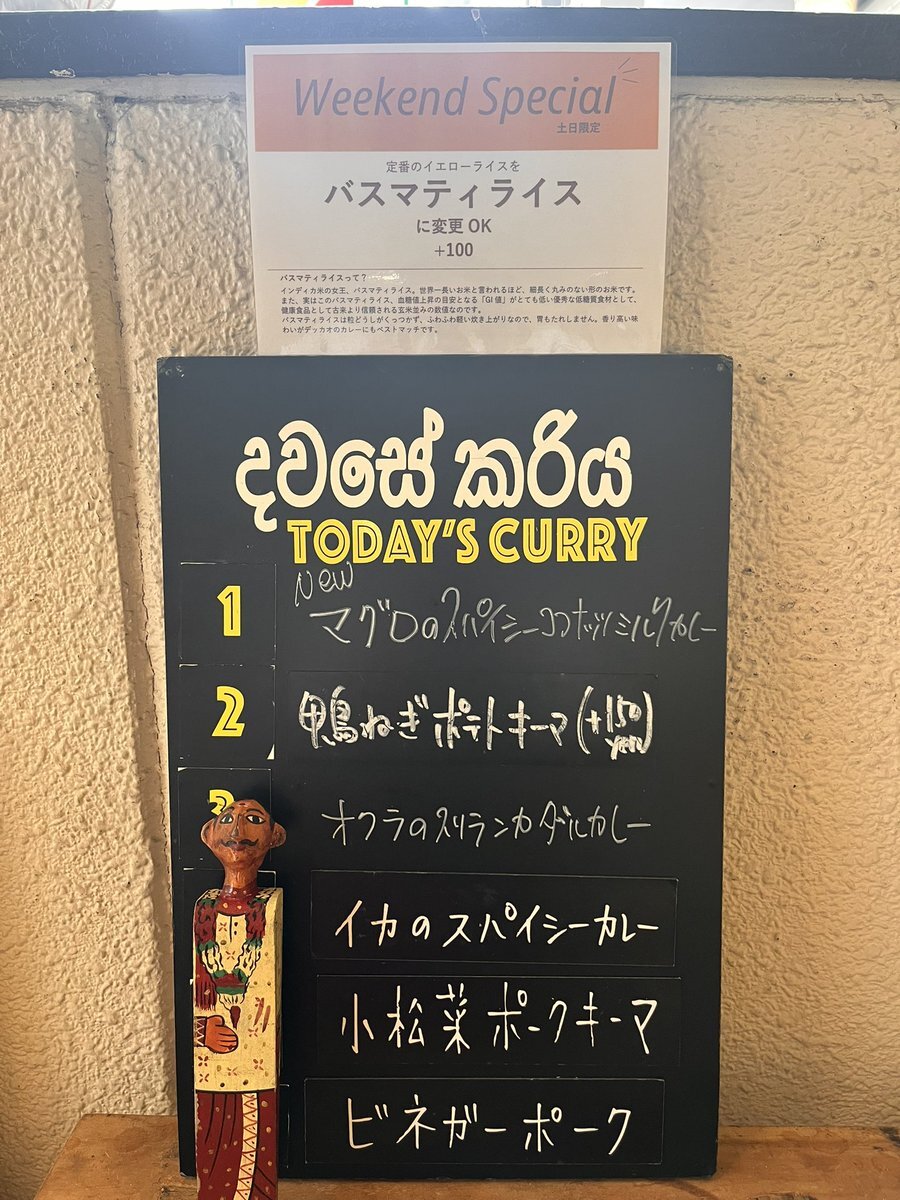 Weekend Special
土日限定
定番のイエローライスを
バスマティライス
に変更OK
+100
バスマティライスって？
インディカ米の女王、バスマティライス。世界一長いお米と言われるほど、細長く丸みのない形のお米です。
また、実はこのバスマティライス、血糖値上昇の目安となる「GI値」がとても低い優秀な低糖質食材として、
健康食品として古来より信頼される玄米並みの数値なのです。
バスマティライスは粒どうしがくっつかず、ふわふわ軽い炊き上がりなので、胃もたれしません。香り高い味
わいがデッカオのカレーにもベストマッチです。
දවසේ කරිය
TODAY'S CURRY
New
1 マグロのスパイシーココナッツミルクカレー
2 鴨ねぎポテトキーマ(+150yen)
3 オクラのスリランカダルカレー
イカのスパイシーカレー
小松菜ポークキーマ
ビネガーポーク